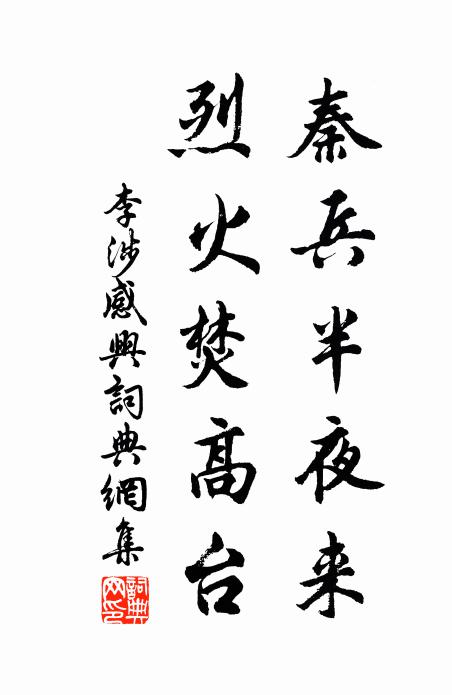 秦兵半夜来
烈火焚高台
李涉感興詞典網集
詞典网印